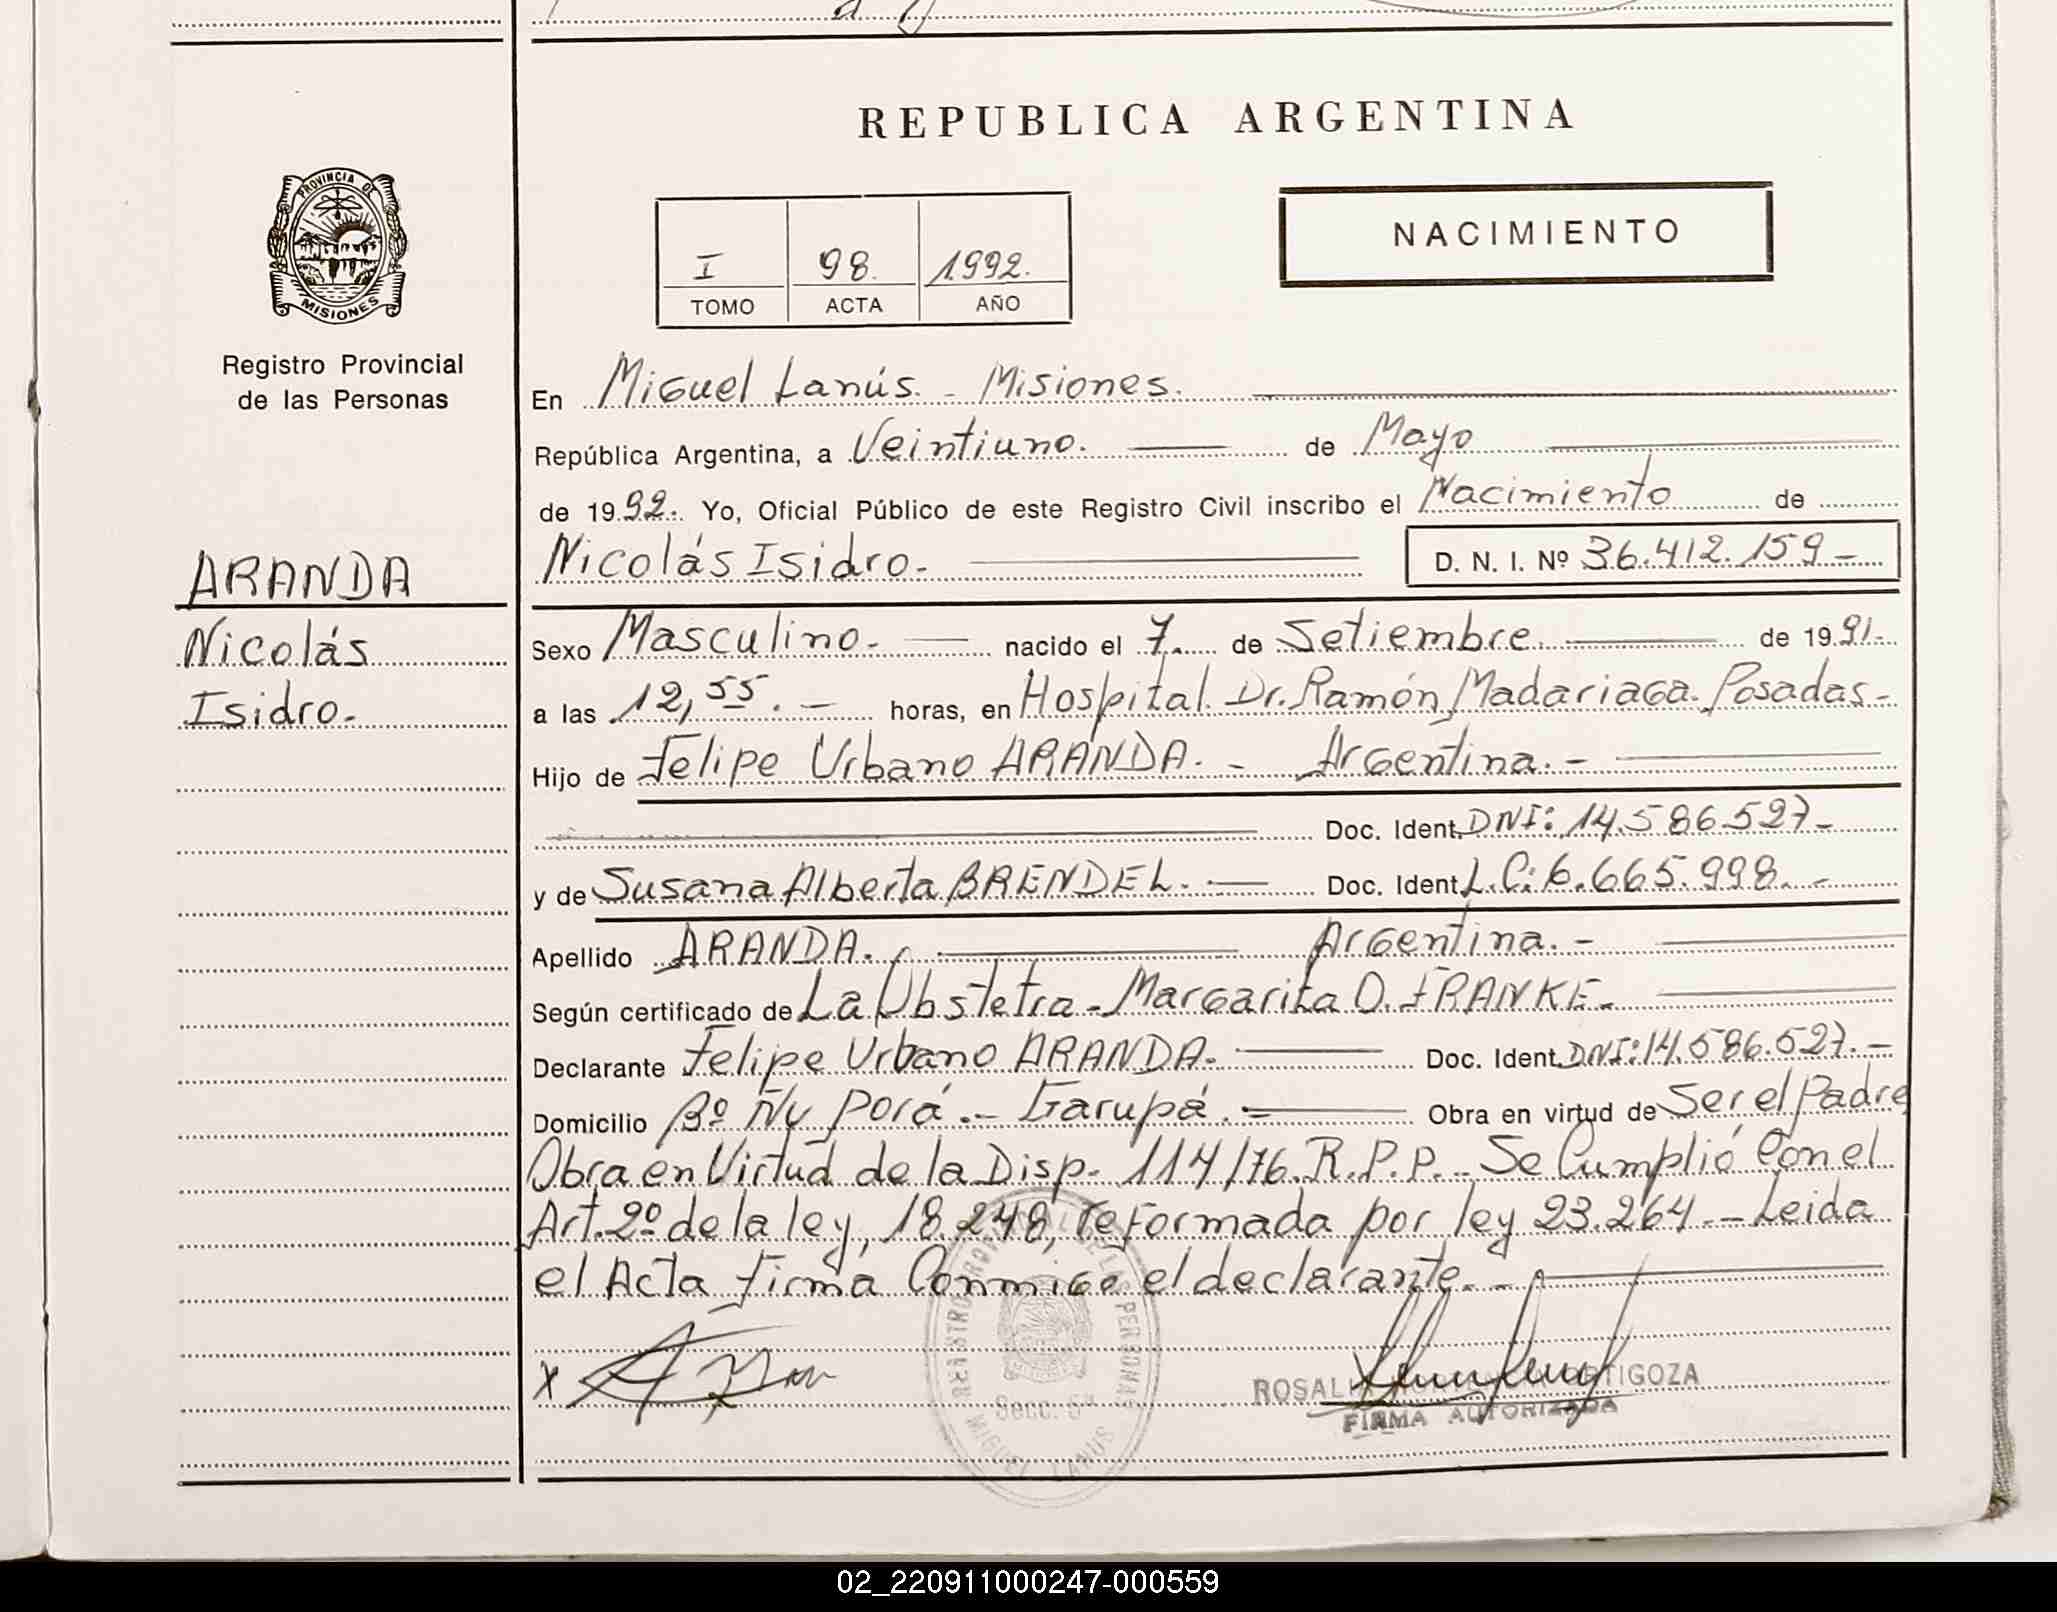 REPUBLICA ARGENTINA
PROVINCIA DE
MISIONES
Registro Provincial
de las Personas
I 98. 1992.
TOMO ACTA AÑO
NACIMIENTO
En Miguel Lanús. - Misiones.
República Argentina, a Veintiuno. de Mayo
de 1992. Yo, Oficial Público de este Registro Civil inscribo el Nacimiento de
Nicolás Isidro. - D. N. I. Nº 36.412.159 -
ARANDA
Nicolás
Isidro. -
Sexo Masculino. - nacido el 7. de Setiembre de 1991.-
a las 12,55. - horas, en Hospital Dr. Ramón Madariaga. Posadas -
Hijo de Felipe Urbano ARANDA. - Argentina. -
Doc. Ident. DNI: 14.586.527 -
y de Susana Alberta BRENDEL. - Doc. Ident L.C: 6.665.998. -
Apellido ARANDA. Argentina. -
Según certificado de La Obstetra - Margarita O. FRANKE. -
Declarante Felipe Urbano ARANDA. - Doc. Ident. DNI: 14.586.527. -
Domicilio Bº Ñu Porá. - Garupá. - Obra en virtud de Ser el Padre
Obra en Virtud de la Disp. 114/76. R.P.P. - Se Cumplió Con el
Art. 2º de la ley, 18.248, reformada por ley 23.264. - Leida
el Acta firma Conmigo el declarante. -
X
REGISTRO PROVINCIAL DE LAS PERSONAS
Secc. 5ª
MIGUEL LANUS
ORTIGOZA
FIRMA AUTORIZADA
02_220911000247-000559